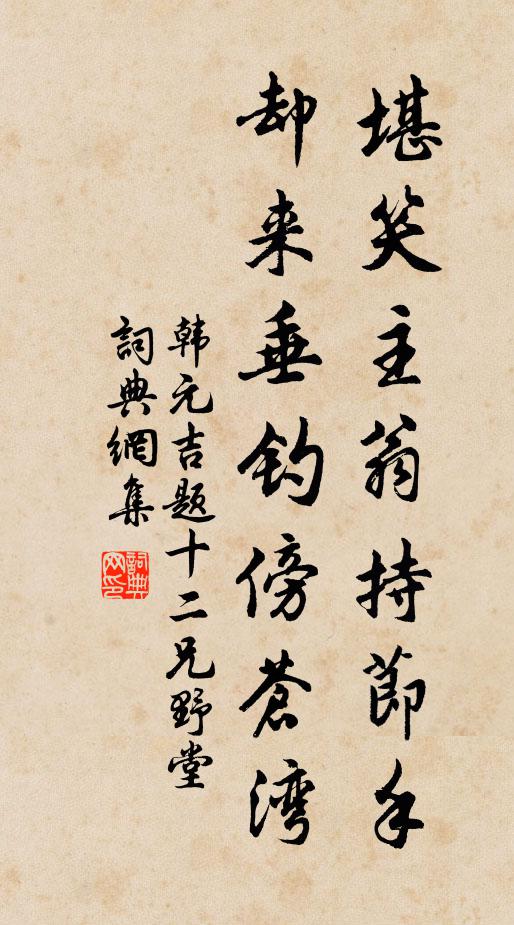 堪笑主翁持節手
却来垂钓傍苍湾
韩元吉题十二兄野堂
詞典網集
詞典网印